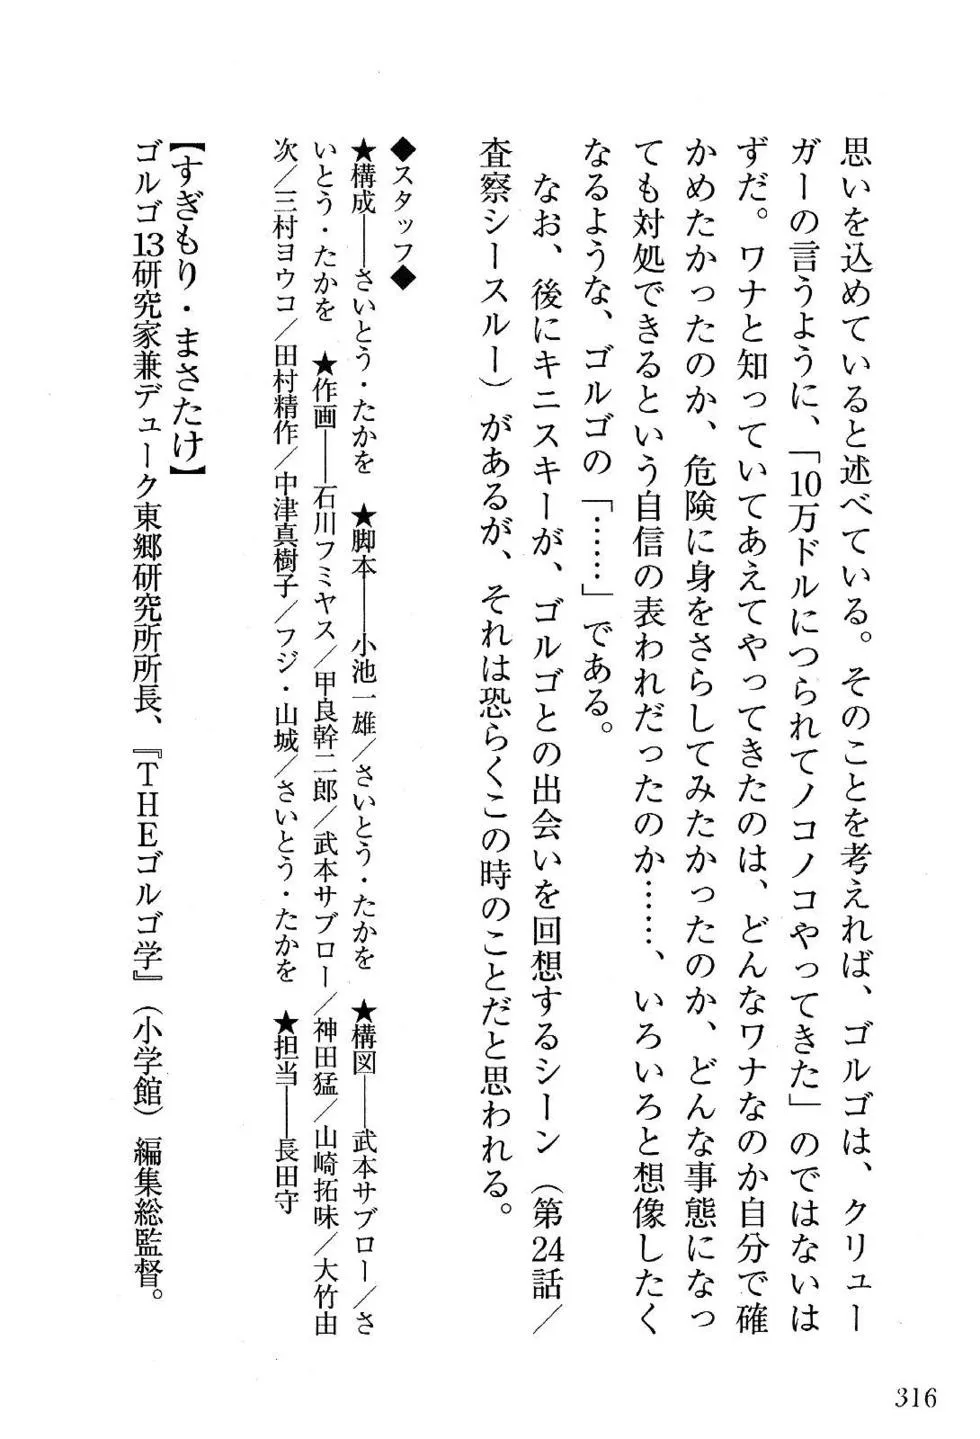 思いを込めていると述べている。そのことを考えれば、ゴルゴは、クリュー
ガーの言うように、「10万ドルにつられてノコノコやってきた」のではないは
ずだ。ワナと知っていてあえてやってきたのは、どんなワナなのか自分で確
かめたかったのか、危険に身をさらしてみたかったのか、どんな事態になっ
ても対処できるという自信の表われだったのか……、いろいろと想像したく
なるような、ゴルゴの「……」である。
なお、後にキニスキーが、ゴルゴとの出会いを回想するシーン（第24話／
査察シースルー）があるが、それは恐らくこの時のことだと思われる。
◆スタッフ◆
★構成――さいとう・たかを　★脚本――小池一雄／さいとう・たかを　★構図――武本サブロー／さ
いとう・たかを　★作画――石川フミヤス／甲良幹二郎／武本サブロー／神田猛／山崎拓味／大竹由
次／三村ヨウコ／田村精作／中津真樹子／フジ・山城／さいとう・たかを　★担当――長田守
【すぎもり・まさたけ】
ゴルゴ13研究家兼デューク東郷研究所所長、『THEゴルゴ学』（小学館）編集総監督。
316